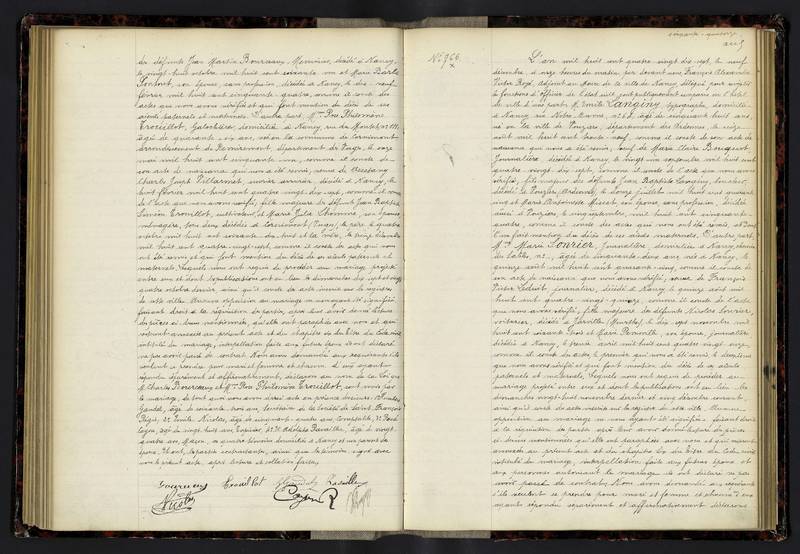 de défunts Jean Martin Bourceaux, Menuisier, décédé à Nancy,
le vingt huit octobre mil huit cent soixante un et Marie Barbe
son épouse, sans profession, décédée à Nancy, le dix neuf
février mil huit cent cinquante quatre, comme il conste des
actes que nous avons vérifiés et qui font mention du décès de ses
aïeuls paternels et maternels. D'autre part, Mme Rose Philomène
Trouillot, domiciliée à Nancy, rue de Montet no 111,
âgée de quarante six ans, née en la commune de Cornimont
arrondissement de Remiremont, département des Vosges, le onze
mai mil huit cent cinquante un, comme il conste de
son acte de naissance qui nous a été remis, veuve de
Charles Joseph Villarmet, ouvrier, décédé à Nancy, le
huit février mil huit cent quatre vingt dix sept, comme il conste
de l'acte que nous avons vérifié, fille majeure de défunts Jean Baptiste
Siméon Trouillot, cultivateur, et Marie Julie Thomas, son épouse
ménagère, tous deux décédés à Cornimont (Vosges), le père le quatre
octobre mil huit cent soixante dix huit et la mère, le treize
mil huit cent quatre vingt sept, comme il conste des actes qui nous
ont été remis et qui font mention du décès de ses aïeuls paternels et
maternels; lesquels nous ont requis de procéder au mariage projeté
entre eux et dont les publications ont eu lieu les dimanches dix sept et vingt
quatre octobre dernier, ainsi qu'il conste des actes inscrits sur les registres
de cette ville. Aucune opposition au mariage ne nous ayant été signifiée,
faisant droit à la réquisition des parties, après leur avoir donné lecture
des pièces ci-dessus mentionnées, qu'elles ont paraphées avec nous et qui
resteront annexées au présent acte et du chapitre six du titre du Code civil
intitulé du mariage, interpellation faite aux futurs époux ils ont déclaré
n'avoir point passé de contrat. Nous avons demandé aux requérants s'ils
veulent se prendre pour mari et femme et chacun d'eux ayant
répondu séparément et affirmativement, déclarons au nom de la loi que
M. Charles Bourceaux et Mme Rose Philomène Trouillot, sont unis par
le mariage, de tout quoi nous avons dressé acte en présence de
âgé de soixante trois ans, Secrétaire de la Société de Saint François
Régis, 2° Emile Nicolas, âgé de cinquante quatre ans, Comptable, 3°
âgé de vingt huit ans, 4° Adolphe Basaille, âgé de vingt
quatre ans, Maçon, ces quatre témoins domiciliés à Nancy et non parents des
époux. Et ont, les parties contractantes, ainsi que les témoins, signé avec
nous le présent acte, après lecture et collation faites.
Trouillot
No 966
L'an mil huit cent quatre vingt dix sept, le neuf
décembre, à onze heures du matin, par devant nous François Alexandre
Victor Boyé, adjoint au Maire de la ville de Nancy délégué pour remplir
les fonctions d'officier de l'état civil, sont publiquement comparus en l'hôtel
de ville d'une part, M. Emile Langiny, typographe, domicilié
à Nancy rue Notre Dame, no 67, âgé de cinquante huit ans,
né en la ville de Vouziers, département des Ardennes, le onze
août mil huit cent trente neuf, comme il conste de son acte de
naissance qui nous a été remis, veuf de Marie Claire Bouquet,
Journalière, décédée à Nancy, le vingt un septembre mil huit cent
quatre vingt dix sept, comme il conste de l'acte que nous avons
vérifié, fils majeur des défunts Jean Baptiste Langiny,
décédé à Vouziers, Ardennes, le douze juillet mil huit cent quarante
cinq et Marie Antoinette Missot, son épouse, sans profession, décédée
aussi à Vouziers, le cinq septembre, mil huit cent cinquante
quatre, comme il conste des actes qui nous ont été remis,
font mention du décès de ses aïeuls maternels. D'autre part,
Mme Marie Lorrier, Journalière, domiciliée à Nancy, chemin
des Sables, no , âgée de cinquante deux ans, née à Nancy, le
quinze août mil huit cent quarante cinq, comme il conste de
son acte de naissance que nous avons vérifié, veuve de François
Victor Leduit, journalier, décédé à Nancy le quinze août mil
huit cent quatre vingt quinze, comme il conste de l'acte
que nous avons vérifié, fille majeure des défunts Nicolas Lorrier,
voiturier, décédé à Jarville (Meurthe), le dix sept novembre mil
huit cent soixante trois et Marie son épouse, journalière
décédée à Nancy, le trente avril mil huit cent quatre vingt onze,
comme il conste des actes, le premier qui nous a été remis, le deuxième
que nous avons vérifié et qui font mention du décès de ses aïeuls
paternels et maternels; lesquels nous ont requis de procéder au
mariage projeté entre eux et dont les publications ont eu lieu les
dimanches vingt huit novembre dernier et cinq décembre courant,
ainsi qu'il conste des actes inscrits sur les registres de cette ville. Aucune
opposition au mariage ne nous ayant été signifiée, faisant droit
à la réquisition des parties, après leur avoir donné lecture des pièces
ci-dessus mentionnées qu'elles ont paraphées avec nous et qui resteront
annexées au présent acte et du chapitre six du titre du Code civil
intitulé du mariage, interpellation faite aux futurs époux et
aux personnes autorisant le mariage ils ont déclaré ne pas
avoir passé de contrat. Nous avons demandé aux requérants
s'ils veulent se prendre pour mari et femme et chacun d'eux
ayant répondu séparément et affirmativement déclarons